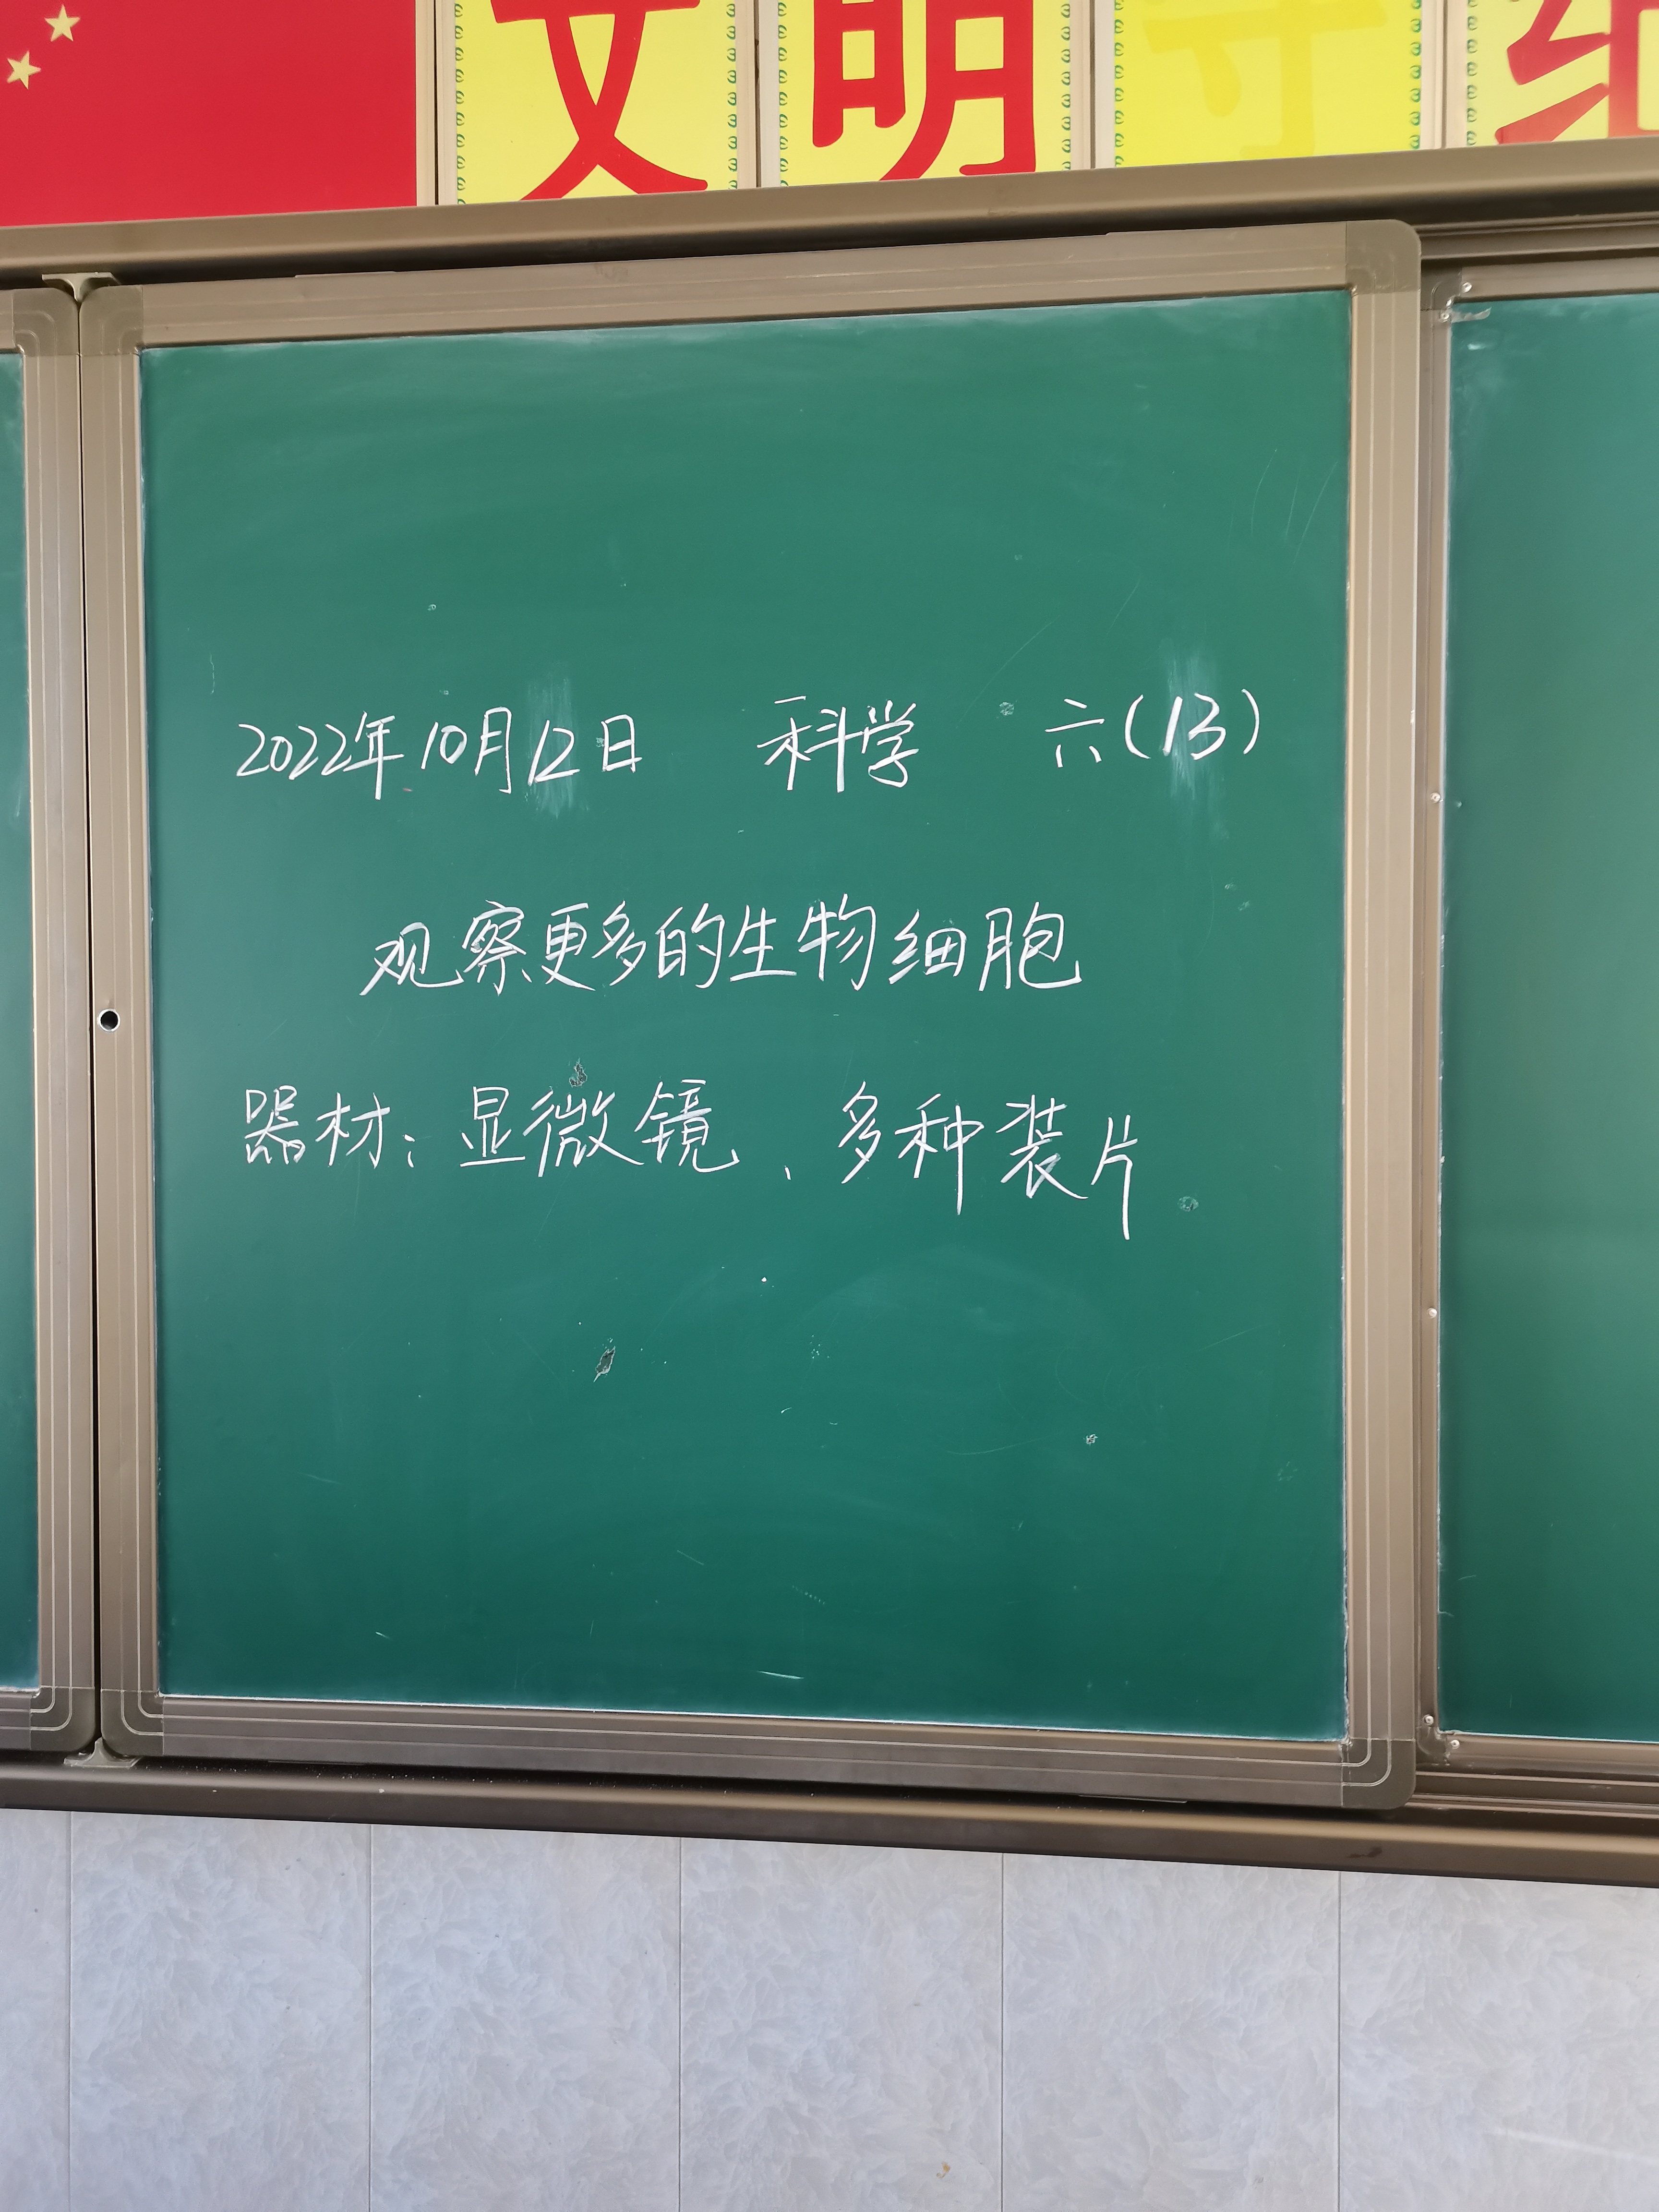 文明守纪
2022年10月12日 科学 六(13)
观察更多的生物细胞
器材：显微镜、多种装片